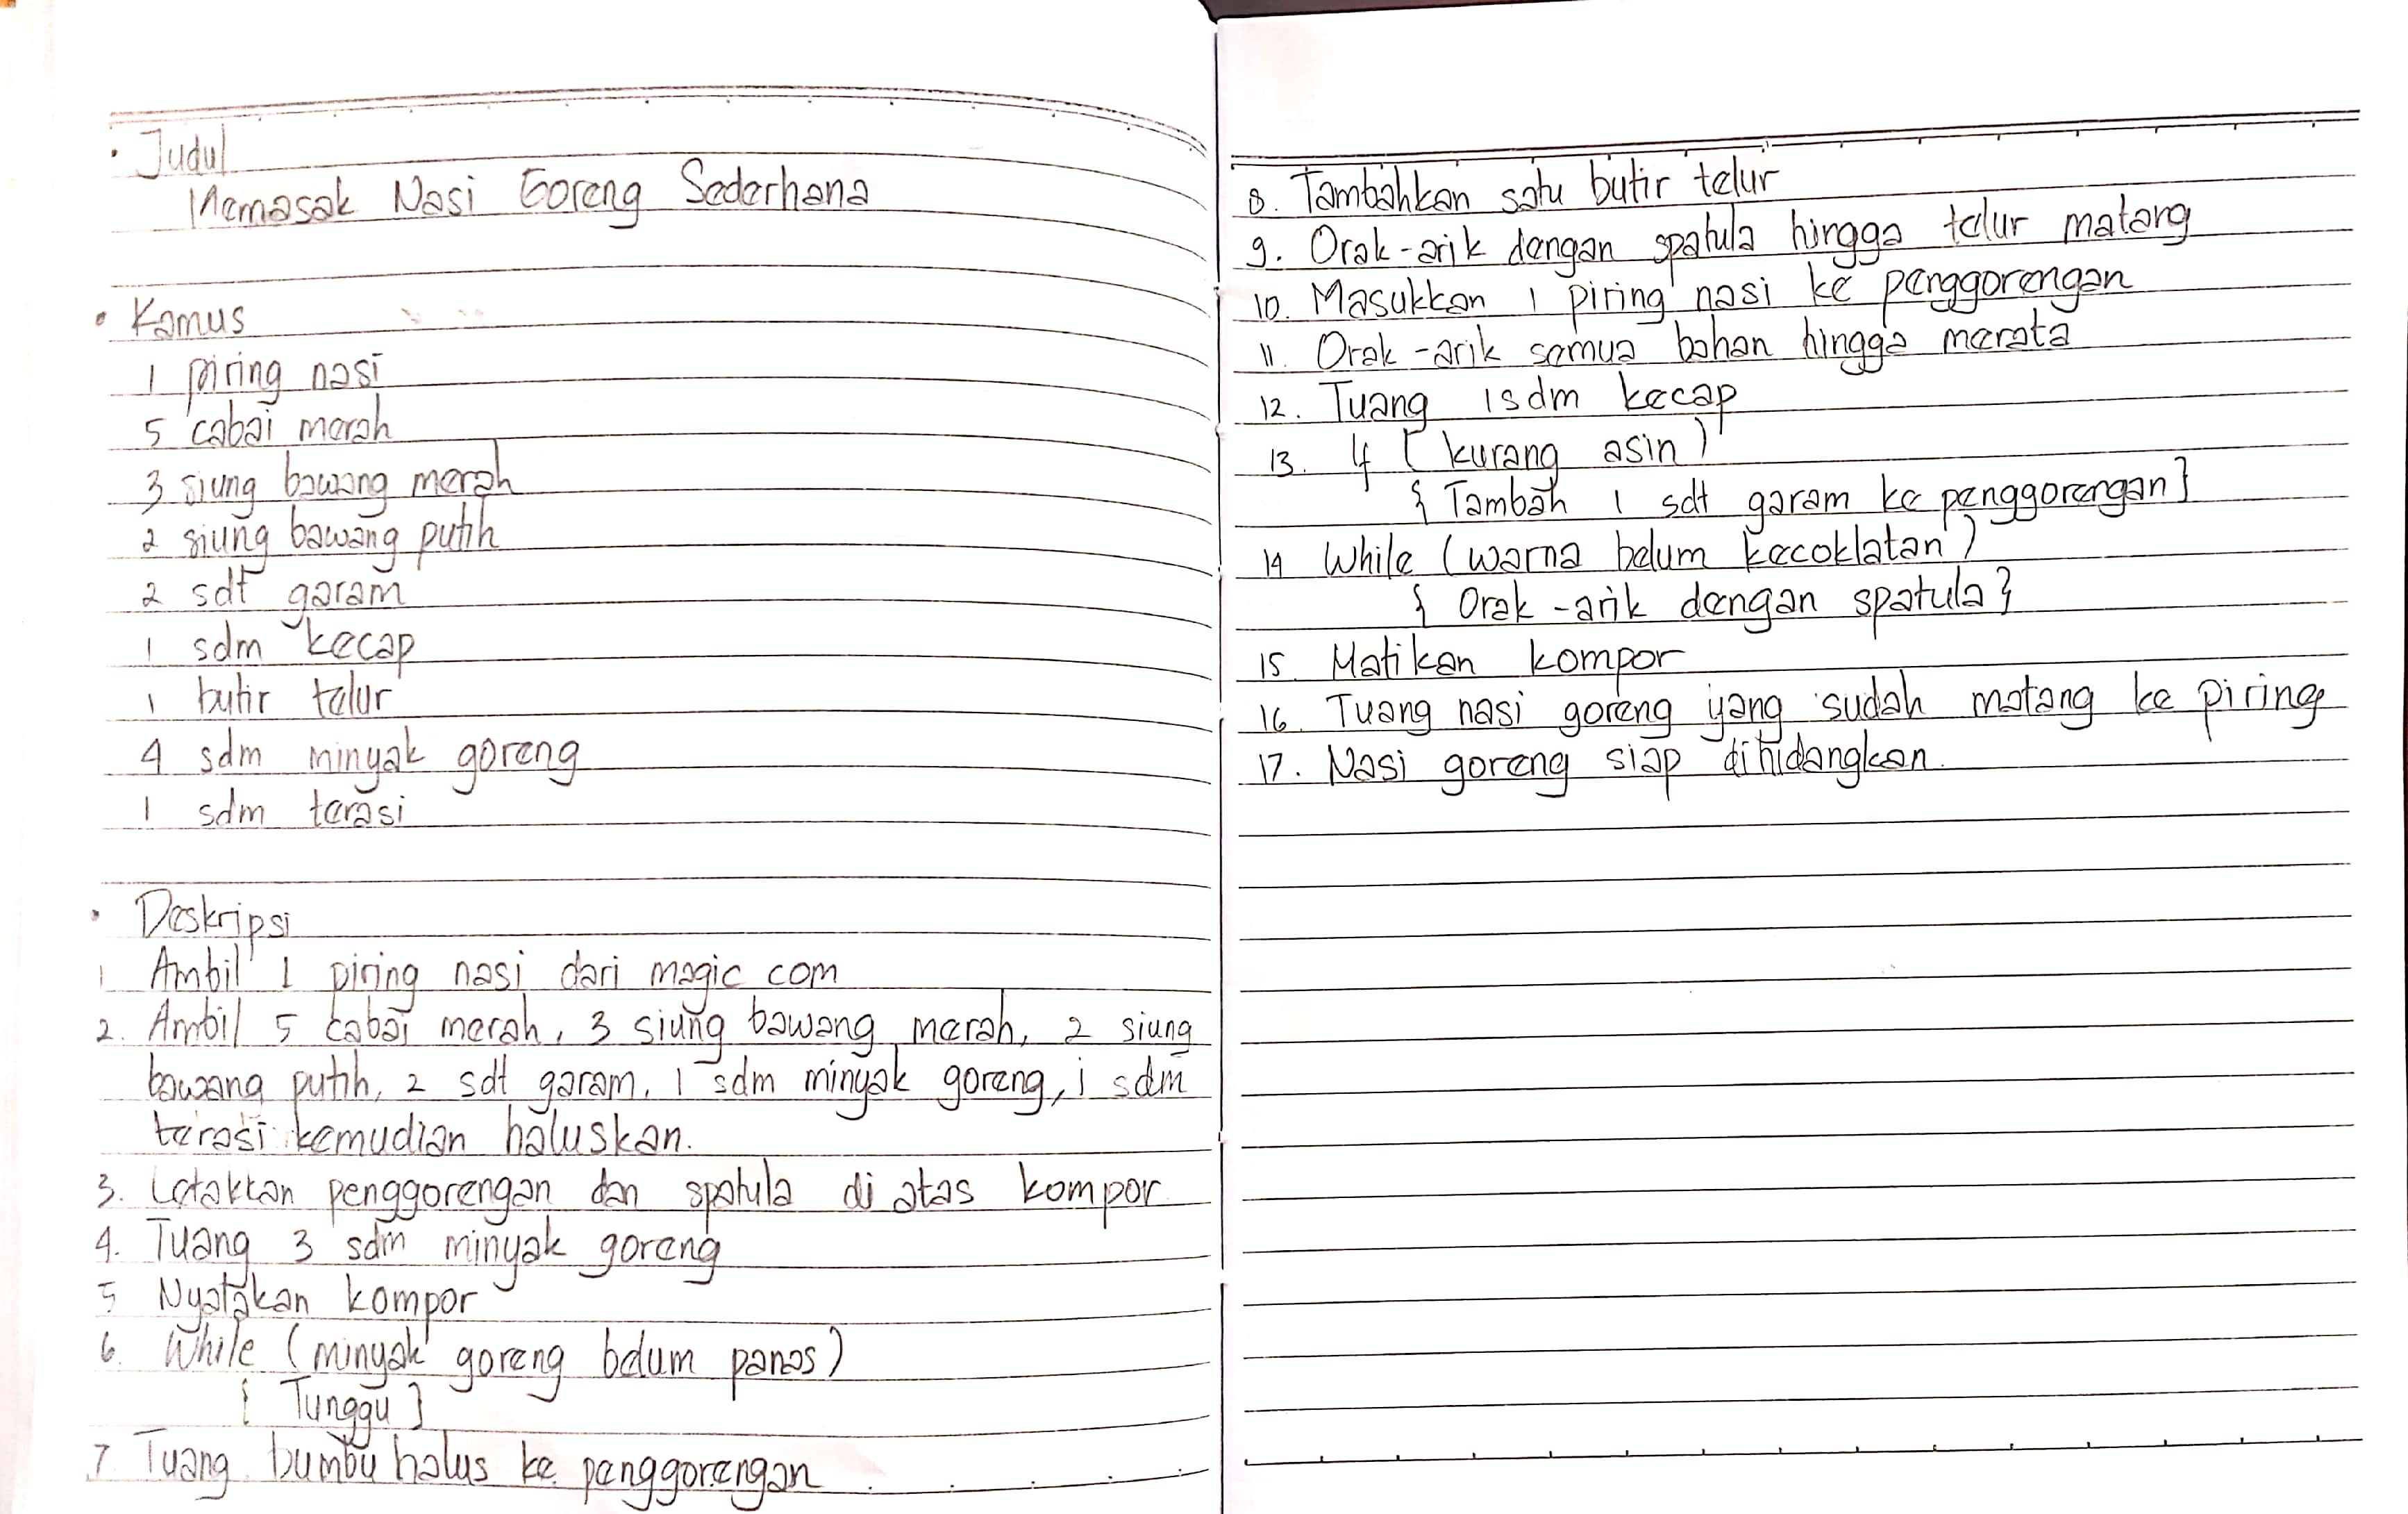 • Judul
Memasak Nasi Goreng Sederhana
• Kamus
1 piring nasi
5 cabai merah
3 siung bawang merah
2 siung bawang putih
2 sdt garam
1 sdm kecap
1 butir telur
4 sdm minyak goreng
1 sdm terasi
• Deskripsi
1 Ambil 1 piring nasi dari magic com
2. Ambil 5 cabai merah, 3 siung bawang merah, 2 siung
bawang putih, 2 sdt garam, 1 sdm minyak goreng, 1 sdm
terasi kemudian haluskan.
3. Letakkan penggorengan dan spatula di atas kompor
4. Tuang 3 sdm minyak goreng
5 Nyatakan kompor
6. While (minyak goreng belum panas)
{ Tunggu }
7 Tuang bumbu halus ke penggorengan
8. Tambahkan satu butir telur
9. Orak-arik dengan spatula hingga telur matang
10. Masukkan 1 piring nasi ke penggorengan
11. Orak-arik semua bahan hingga merata
12. Tuang 1 sdm kecap
13. If (kurang asin)
{ Tambah 1 sdt garam ke penggorengan}
14 While (warna belum kecoklatan)
{ Orak-arik dengan spatula}
15. Matikan kompor
16. Tuang nasi goreng yang sudah matang ke piring
17. Nasi goreng siap dihidangkan.